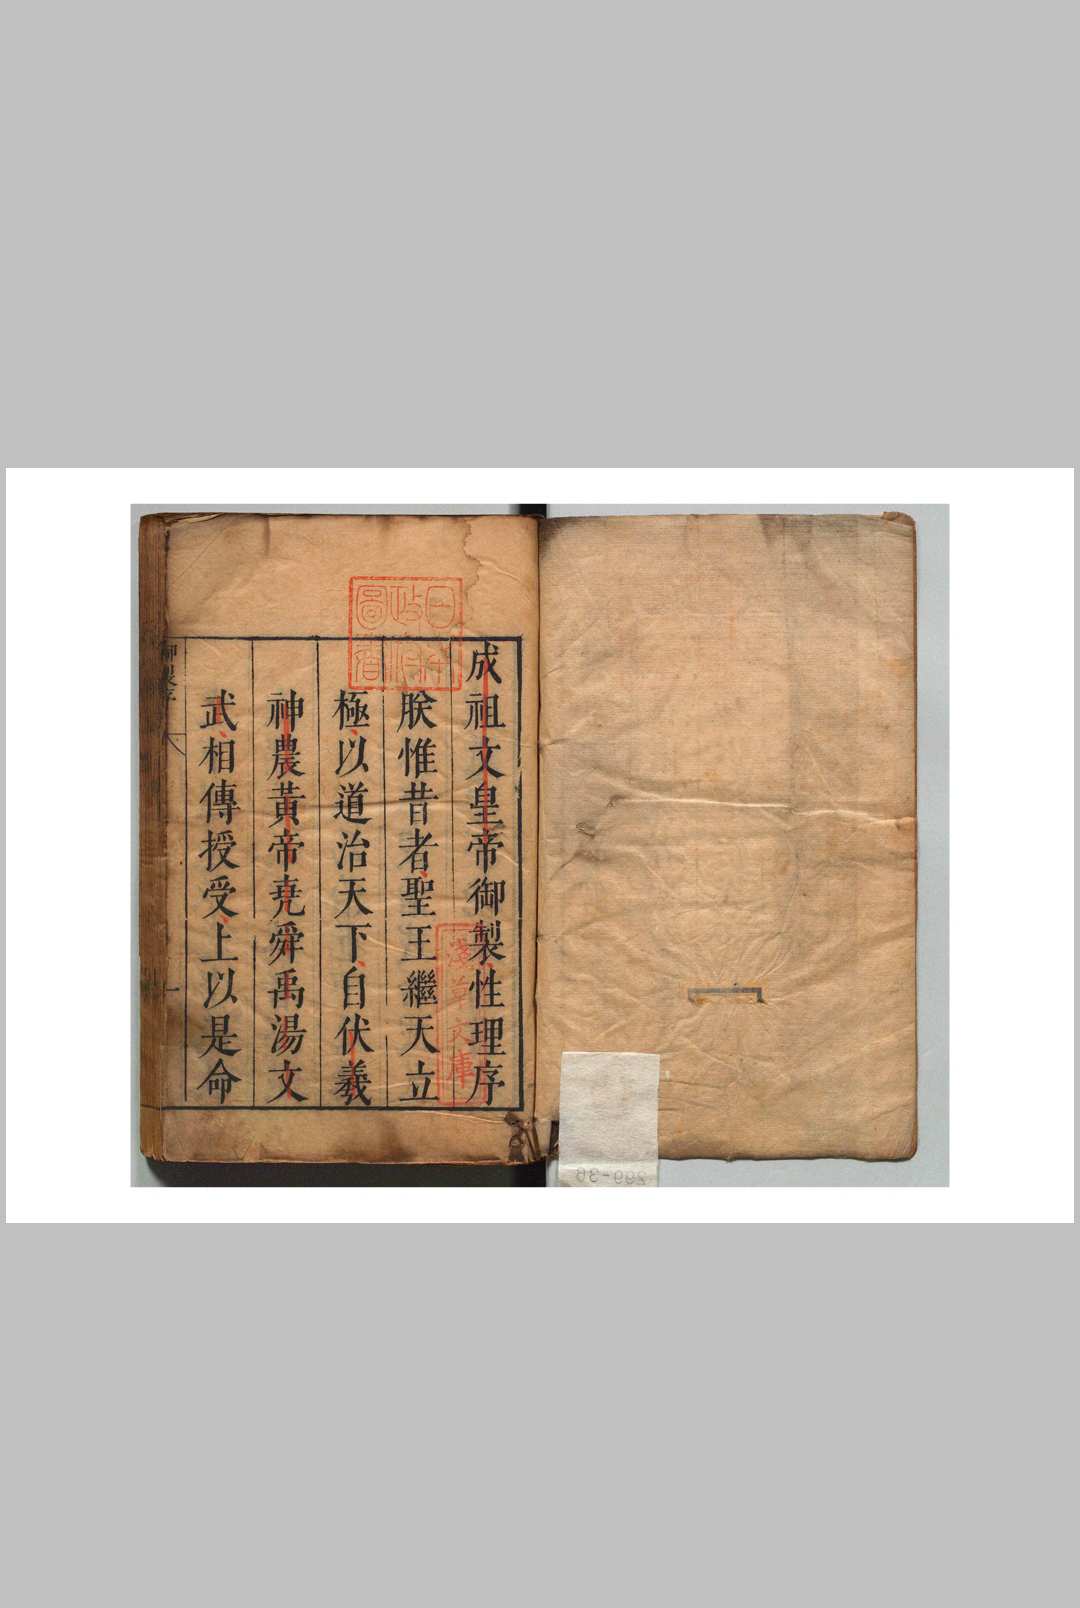 成祖文皇帝御製性理序
朕惟昔者聖王繼天立
極以道治天下自伏羲
神農黃帝堯舜禹湯文
武相傳授受上以是命
御製序
一
日本政府圖書
淺草文庫
299-36